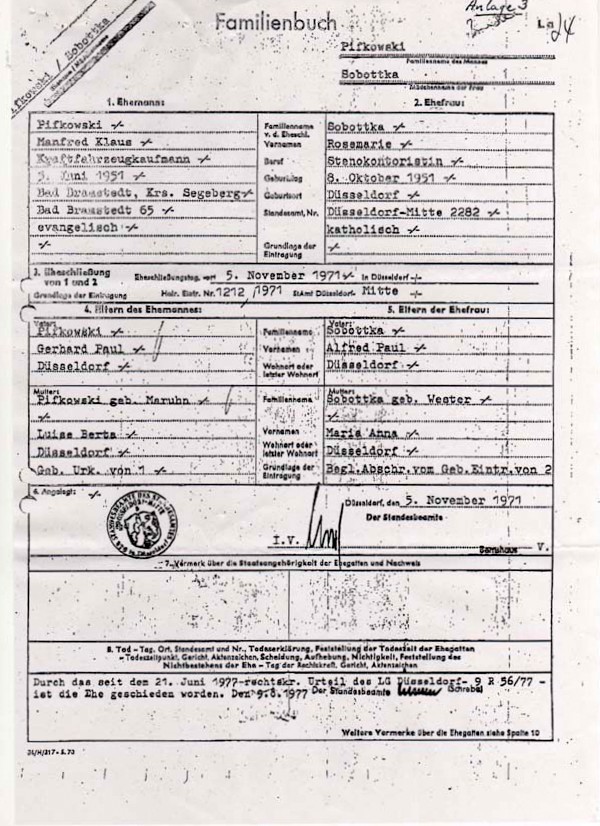 Anlage 3
Pifkowski / Sobottka
Familienbuch
Pifkowski
Familienname des Mannes
Sobottka
Mädchenname der Frau
1. Ehemann:
2. Ehefrau:
Pifkowski -/- Familienname v. d. Eheschl. Sobottka -/-
Manfred Klaus -/- Vornamen Rosemarie -/-
Kraftfahrzeugkaufmann -/- Beruf Stenokontoristin -/-
5. Juni 1951 -/- Geburtstag 8. Oktober 1951 -/-
Bad Bramstedt, Krs. Segeberg -/- Geburtsort Düsseldorf -/-
Bad Bramstedt 65 -/- Standesamt, Nr. Düsseldorf-Mitte 2282 -/-
evangelisch -/- katholisch -/-
-/- Grundlage der Eintragung -/-
3. Eheschließung von 1 und 2 Eheschließungstag, Ort 5. November 1971 -/- in Düsseldorf -/-
Grundlage der Eintragung Heir. Eintr. Nr. 1212 /1971 StAmt Düsseldorf- Mitte -/-
4. Eltern des Ehemannes:
5. Eltern der Ehefrau:
Vater: Vater:
Pifkowski -/- Familienname Sobottka -/-
Gerhard Paul -/- Vornamen Alfred Paul -/-
Düsseldorf -/- Wohnort oder letzter Wohnort Düsseldorf -/-
Mutter: Mutter:
Pifkowski geb. Maruhn -/- Familienname Sobottka geb. Wester -/-
-/- -/-
Luise Berta -/- Vornamen Maria Anna -/-
Düsseldorf -/- Wohnort oder letzter Wohnort Düsseldorf -/-
Geb. Urk. von 1 -/- Grundlage der Eintragung Begl.Abschr.vom Geb.Eintr.von 2
6. Angelegt: -/-
Düsseldorf, den 5. November 1971
Der Standesbeamte
I.V.
V.
7. Vermerk über die Staatsangehörigkeit der Ehegatten und Nachweis
8. Tod - Tag, Ort, Standesamt und Nr., Todeserklärung, Feststellung der Todeszeit der Ehegatten
- Todeszeitpunkt, Gericht, Aktenzeichen, Scheidung, Aufhebung, Nichtigkeit, Feststellung des
Nichtbestehens der Ehe - Tag der Rechtskraft, Gericht, Aktenzeichen
Durch das seit dem 21. Juni 1977 rechtskr. Urteil des LG Düsseldorf- 9 R 56/77 -
ist die Ehe geschieden worden. Den 9.8.1977 Der Standesbeamte (Schrebe)
Weitere Vermerke über die Ehegatten siehe Spalte 10